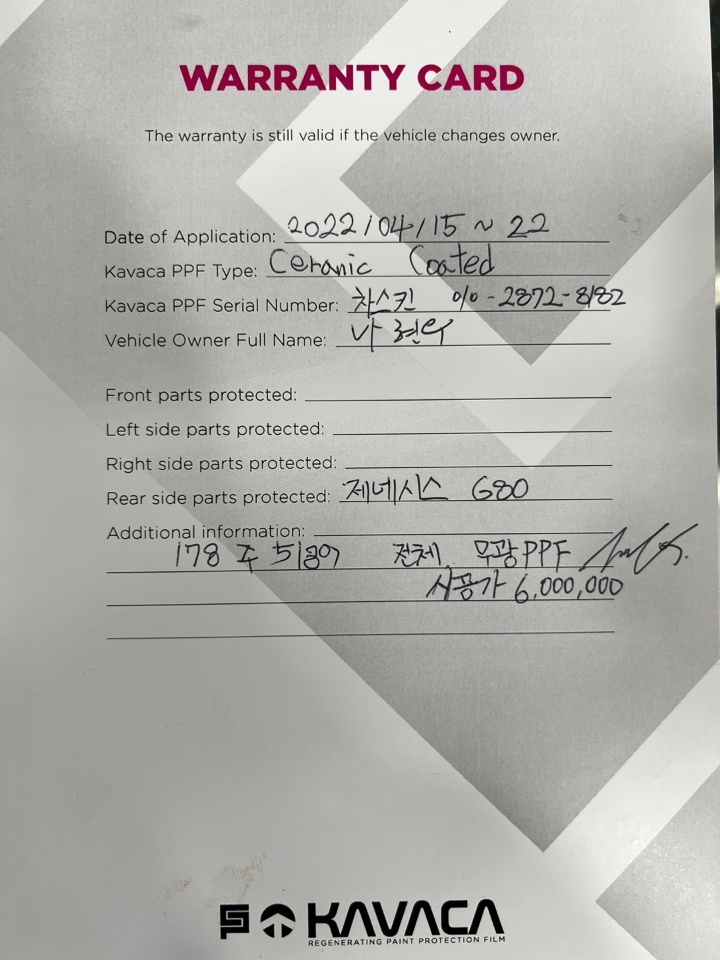 WARRANTY CARD
The warranty is still valid if the vehicle changes owner.
Date of Application: 2022/04/15 ~ 22
Kavaca PPF Type: Ceramic Coated
Kavaca PPF Serial Number: 차스킨 010-2872-8182
Vehicle Owner Full Name:
Front parts protected:
Left side parts protected:
Right side parts protected:
Rear side parts protected: 제네시스 G80
Additional information:
178 주 전체 무광PPF
시공가 6,000,000
KAVACA
REGENERATING PAINT PROTECTION FILM